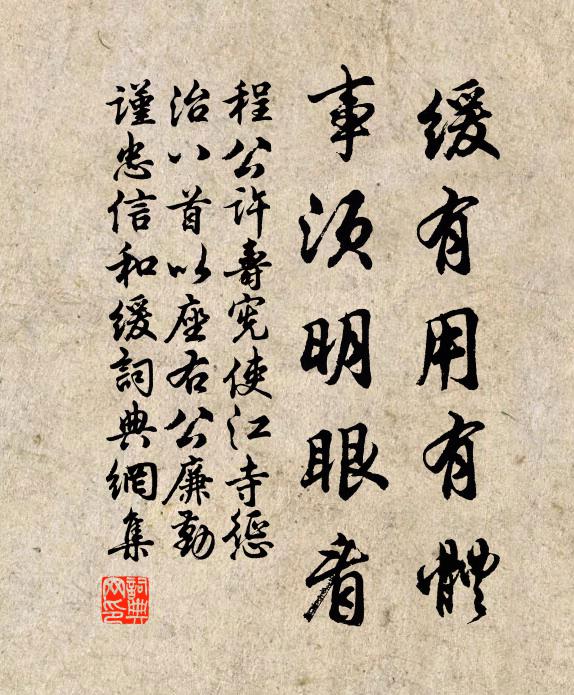 緩有用有體
事須明眼者
程公許壽宪使江寺惩
治八首以座右公廉勤
謹忠信和緩詞典網集
詞典
网印